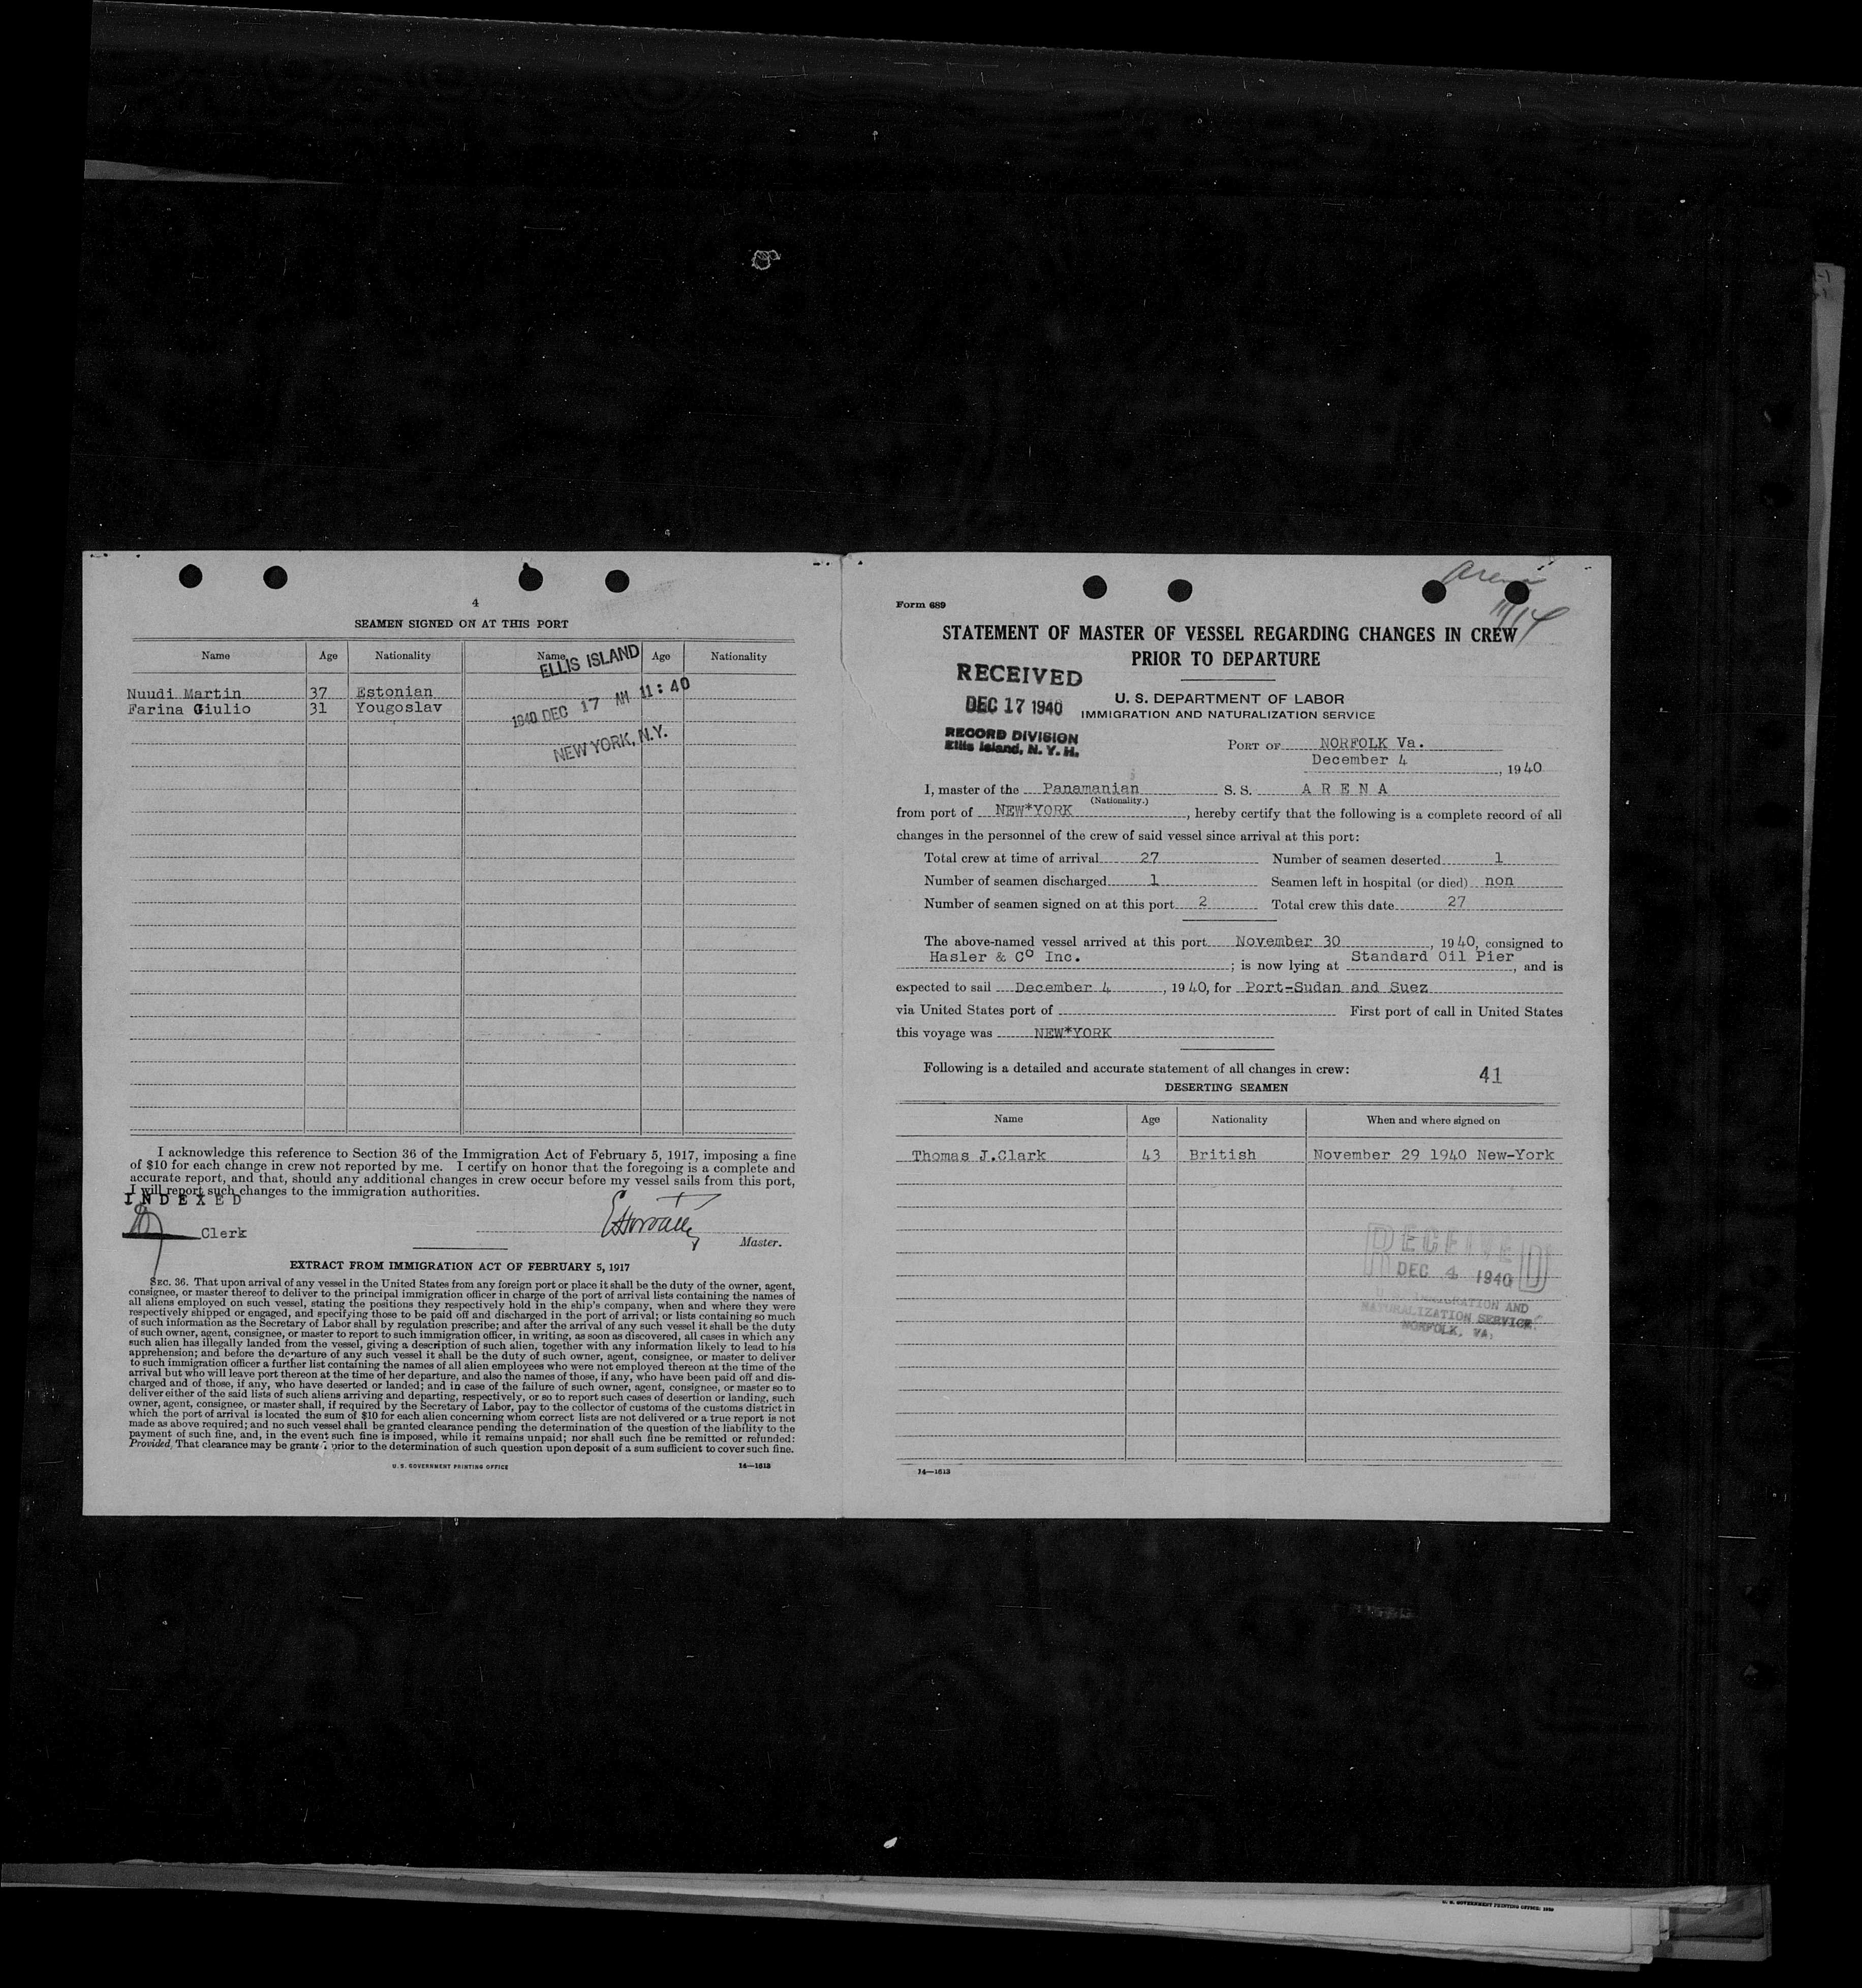 4
SEAMEN SIGNED ON AT THIS PORT
Name Age Nationality Name Age Nationality
ELLIS ISLAND
1940 DEC 17 AM 11:40
NEW YORK, N.Y.
Nuudi Martin 37 Estonian
Farina Giulio 31 Yougoslav
I acknowledge this reference to Section 36 of the Immigration Act of February 5, 1917, imposing a fine
of $10 for each change in crew not reported by me. I certify on honor that the foregoing is a complete and
accurate report, and that, should any additional changes in crew occur before my vessel sails from this port,
I will report such changes to the immigration authorities.
INDEXED
Clerk
Master.
EXTRACT FROM IMMIGRATION ACT OF FEBRUARY 5, 1917
SEC. 36. That upon arrival of any vessel in the United States from any foreign port or place it shall be the duty of the owner, agent,
consignee, or master thereof to deliver to the principal immigration officer in charge of the port of arrival lists containing the names of
all aliens employed on such vessel, stating the positions they respectively hold in the ship's company, when and where they were
respectively shipped or engaged, and specifying those to be paid off and discharged in the port of arrival; or lists containing so much
of such information as the Secretary of Labor shall by regulation prescribe; and after the arrival of any such vessel it shall be the duty
of such owner, agent, consignee, or master to report to such immigration officer, in writing, as soon as discovered, all cases in which any
such alien has illegally landed from the vessel, giving a description of such alien, together with any information likely to lead to his
apprehension; and before the departure of any such vessel it shall be the duty of such owner, agent, consignee, or master to deliver
to such immigration officer a further list containing the names of all alien employees who were not employed thereon at the time of the
arrival but who will leave port thereon at the time of her departure, and also the names of those, if any, who have been paid off and dis-
charged and of those, if any, who have deserted or landed; and in case of the failure of such owner, agent, consignee, or master so to
deliver either of the said lists of such aliens arriving and departing, respectively, or so to report such cases of desertion or landing, such
owner, agent, consignee, or master shall, if required by the Secretary of Labor, pay to the collector of customs of the customs district in
which the port of arrival is located the sum of $10 for each alien concerning whom correct lists are not delivered or a true report is not
made as above required; and no such vessel shall be granted clearance pending the determination of the question of the liability to the
payment of such fine, and, in the event such fine is imposed, while it remains unpaid; nor shall such fine be remitted or refunded:
Provided, That clearance may be granted prior to the determination of such question upon deposit of a sum sufficient to cover such fine.
U. S. GOVERNMENT PRINTING OFFICE 14—1613
Arena
11/14
Form 689
STATEMENT OF MASTER OF VESSEL REGARDING CHANGES IN CREW
PRIOR TO DEPARTURE
RECEIVED
DEC 17 1940
RECORD DIVISION
Ellis Island, N. Y. H.
U. S. DEPARTMENT OF LABOR
IMMIGRATION AND NATURALIZATION SERVICE
PORT OF NORFOLK Va.
December 4, 1940
I, master of the Panamanian S. S. A R E N A
(Nationality.)
from port of NEW*YORK, hereby certify that the following is a complete record of all
changes in the personnel of the crew of said vessel since arrival at this port:
Total crew at time of arrival 27 Number of seamen deserted 1
Number of seamen discharged 1 Seamen left in hospital (or died) non
Number of seamen signed on at this port 2 Total crew this date 27
The above-named vessel arrived at this port November 30, 1940, consigned to
Hasler & Co Inc.; is now lying at Standard Oil Pier, and is
expected to sail December 4, 1940, for Port-Sudan and Suez
via United States port of First port of call in United States
this voyage was NEW*YORK
Following is a detailed and accurate statement of all changes in crew:
41
DESERTING SEAMEN
Name Age Nationality When and where signed on
Thomas J.Clark 43 British November 29 1940 New-York
RECEIVED
DEC 4 1940
IMMIGRATION AND
NATURALIZATION SERVICE
NORFOLK, VA.
14—1613
U. S. GOVERNMENT PRINTING OFFICE